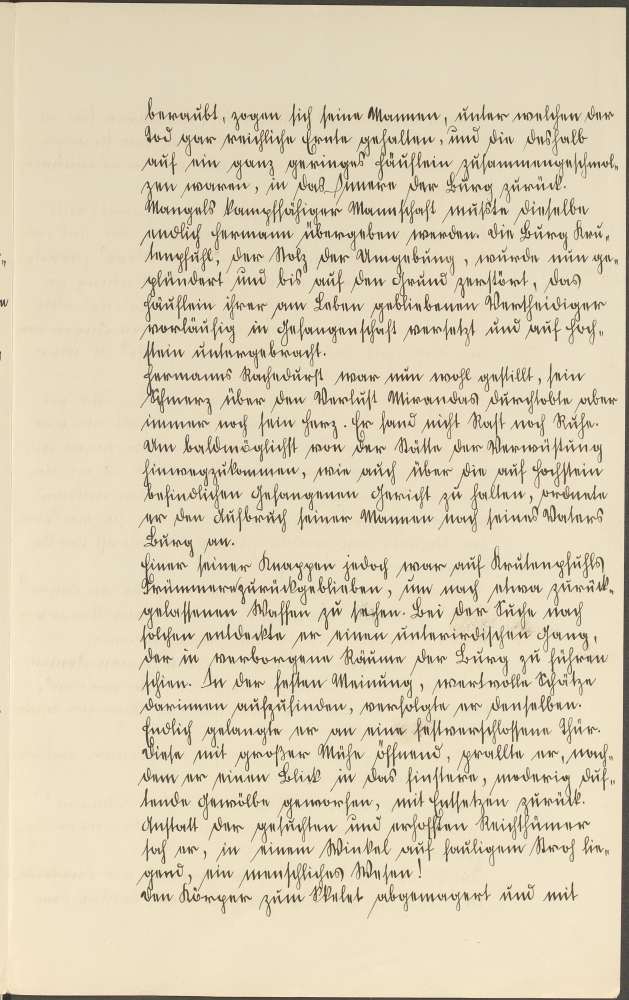 beraubt, zogen sich seine Mannen, unter welchen der
Tod gar reichliche Ernte gehalten, und die deshalb
auf ein ganz geringes Häuflein zusammengeschmol-
zen waren, in das Innere der Burg zurück.
Mangels kampffähiger Mannschaft mußte dieselbe
endlich Hermann übergeben werden. Die Burg Kru-
tenpfuhl, der Stolz der Umgebung, wurde nun ge-
plündert und bis auf den Grund zerstört, das
Häuflein ihrer am Leben gebliebenen Vertheidiger
vorläufig in Gefangenschaft versetzt und auf Hoch-
stein untergebracht.
Hermanns Rachedurst war nun wohl gestillt, sein
Schmerz über den Verlust Mirandas durchtobte aber
immer noch sein Herz. Er fand nicht Rast noch Ruhe.
Um baldmöglichst von der Stätte der Verwüstung
hinwegzukommen, wie auch über die auf Hochstein
befindlichen Gefangenen Gericht zu halten, ordnete
er den Aufbruch seiner Mannen nach seines Vaters
Burg an.
Einer seiner Knappen jedoch war auf Krutenpfuhls
Trümmern zurückgeblieben, um nach etwa zurück-
gelassenen Waffen zu suchen. Bei der Suche nach
solchen entdeckte er einen unterirdischen Gang,
der in verborgene Räume der Burg zu führen
schien. In der festen Meinung, wertvolle Schätze
darinnen aufzufinden, verfolgte er denselben.
Endlich gelangte er an eine festverschlossene Thür.
Diese mit großer Mühe öffnend, prallte er, nach-
dem er einen Blick in das finstere, moderig duf-
tende Gewölbe geworfen, mit Entsetzen zurück.
Anstatt der gesuchten und erhofften Reichthümer
sah er, in einem Winkel auf fauligem Stroh lie-
gend, ein menschliches Wesen!
Den Körper zum Skelet abgemagert und mit